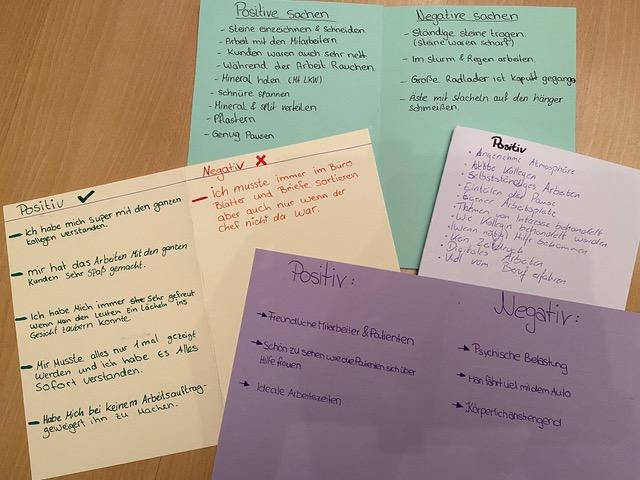 Positive sachen
- Steine einzeichnen & Schneiden.
- Arbeit mit den Mitarbeitern
- Kunden waren auch sehr nett
- Während der Arbeit Rauchen
- Mineral holen (Mit LKW)
- Schnüre spannen
- Mineral & split verteilen
- Pflastern
- Genug Pausen
Negative sachen
- Ständige steine tragen
(steine waren scharf)
- Im Sturm & Regen arbeiten.
- Große Radlader ist kaputt gegangen
- Äste mit stacheln auf den hänger
schmeißen.
Positiv
• Angenehme Atmosphäre
• Nette Kollegen
• Selbstständiges Arbeiten
• Einteilen der Pause
• Eigener Arbeitsplatz
• Themen von Interesse behandelt
• Wie Kollegin behandelt worden
• (Wenn nötig) Hilfe bekommen
• Kein Zeitdruck
• Digitales Arbeiten
• Viel vom Beruf erfahren
Positiv ✓
- Ich habe mich super mit den ganzen
kollegen verstanden.
- mir hat das Arbeiten Mit den ganzen
Kunden sehr Spaß gemacht.
- Ich habe Mich immer sehr gefreut
Wenn Man den Leuten Ein Lächeln ins
Gesicht zaubern konnte.
- Mir Musste alles nur 1 mal gezeigt
werden und ich habe es Alles
Sofort verstanden.
- Habe Mich bei keinem Arbeitsauftrag-
geweigert ihn zu Machen.
Negativ ✗
- ich musste immer im Büro
Blätter und Briefe sortieren
aber auch nur wenn der
chef nicht da war.
Positiv:
→ Freundliche Mitarbeiter & Patienten
→ Schön zu sehen wie die Patienten sich über
Hilfe freuen
→ Ideale Arbeitszeiten
Negativ:
→ Psychische Belastung
→ Man fährt viel mit dem Auto
→ Körperlich anstrengend